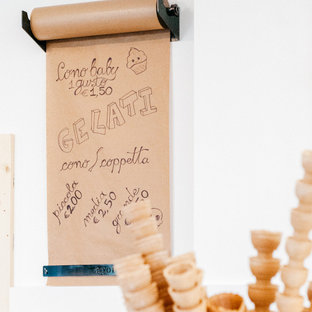 Cono baby
1 gusto
€1,50
GELATI
cono/coppetta
piccola media grande
€2,00 €2,50 €3,50